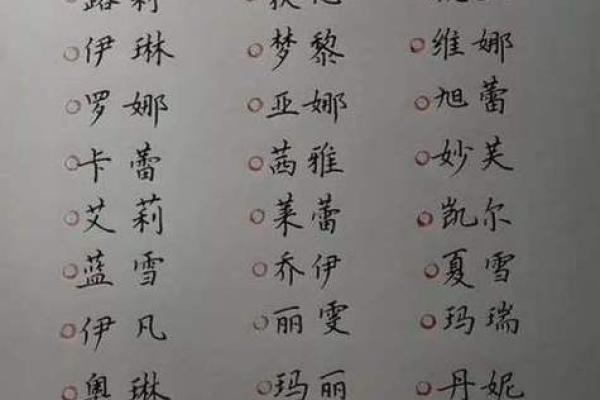 露莉
伊琳 梦黎 维娜
罗娜 亚娜 旭蕾
卡蕾 茜雅 妙芙
艾莉 莱蕾 凯尔
蓝雪 乔伊 夏雪
伊凡 丽雯 玛瑞
奥琳 玛丽 丹妮